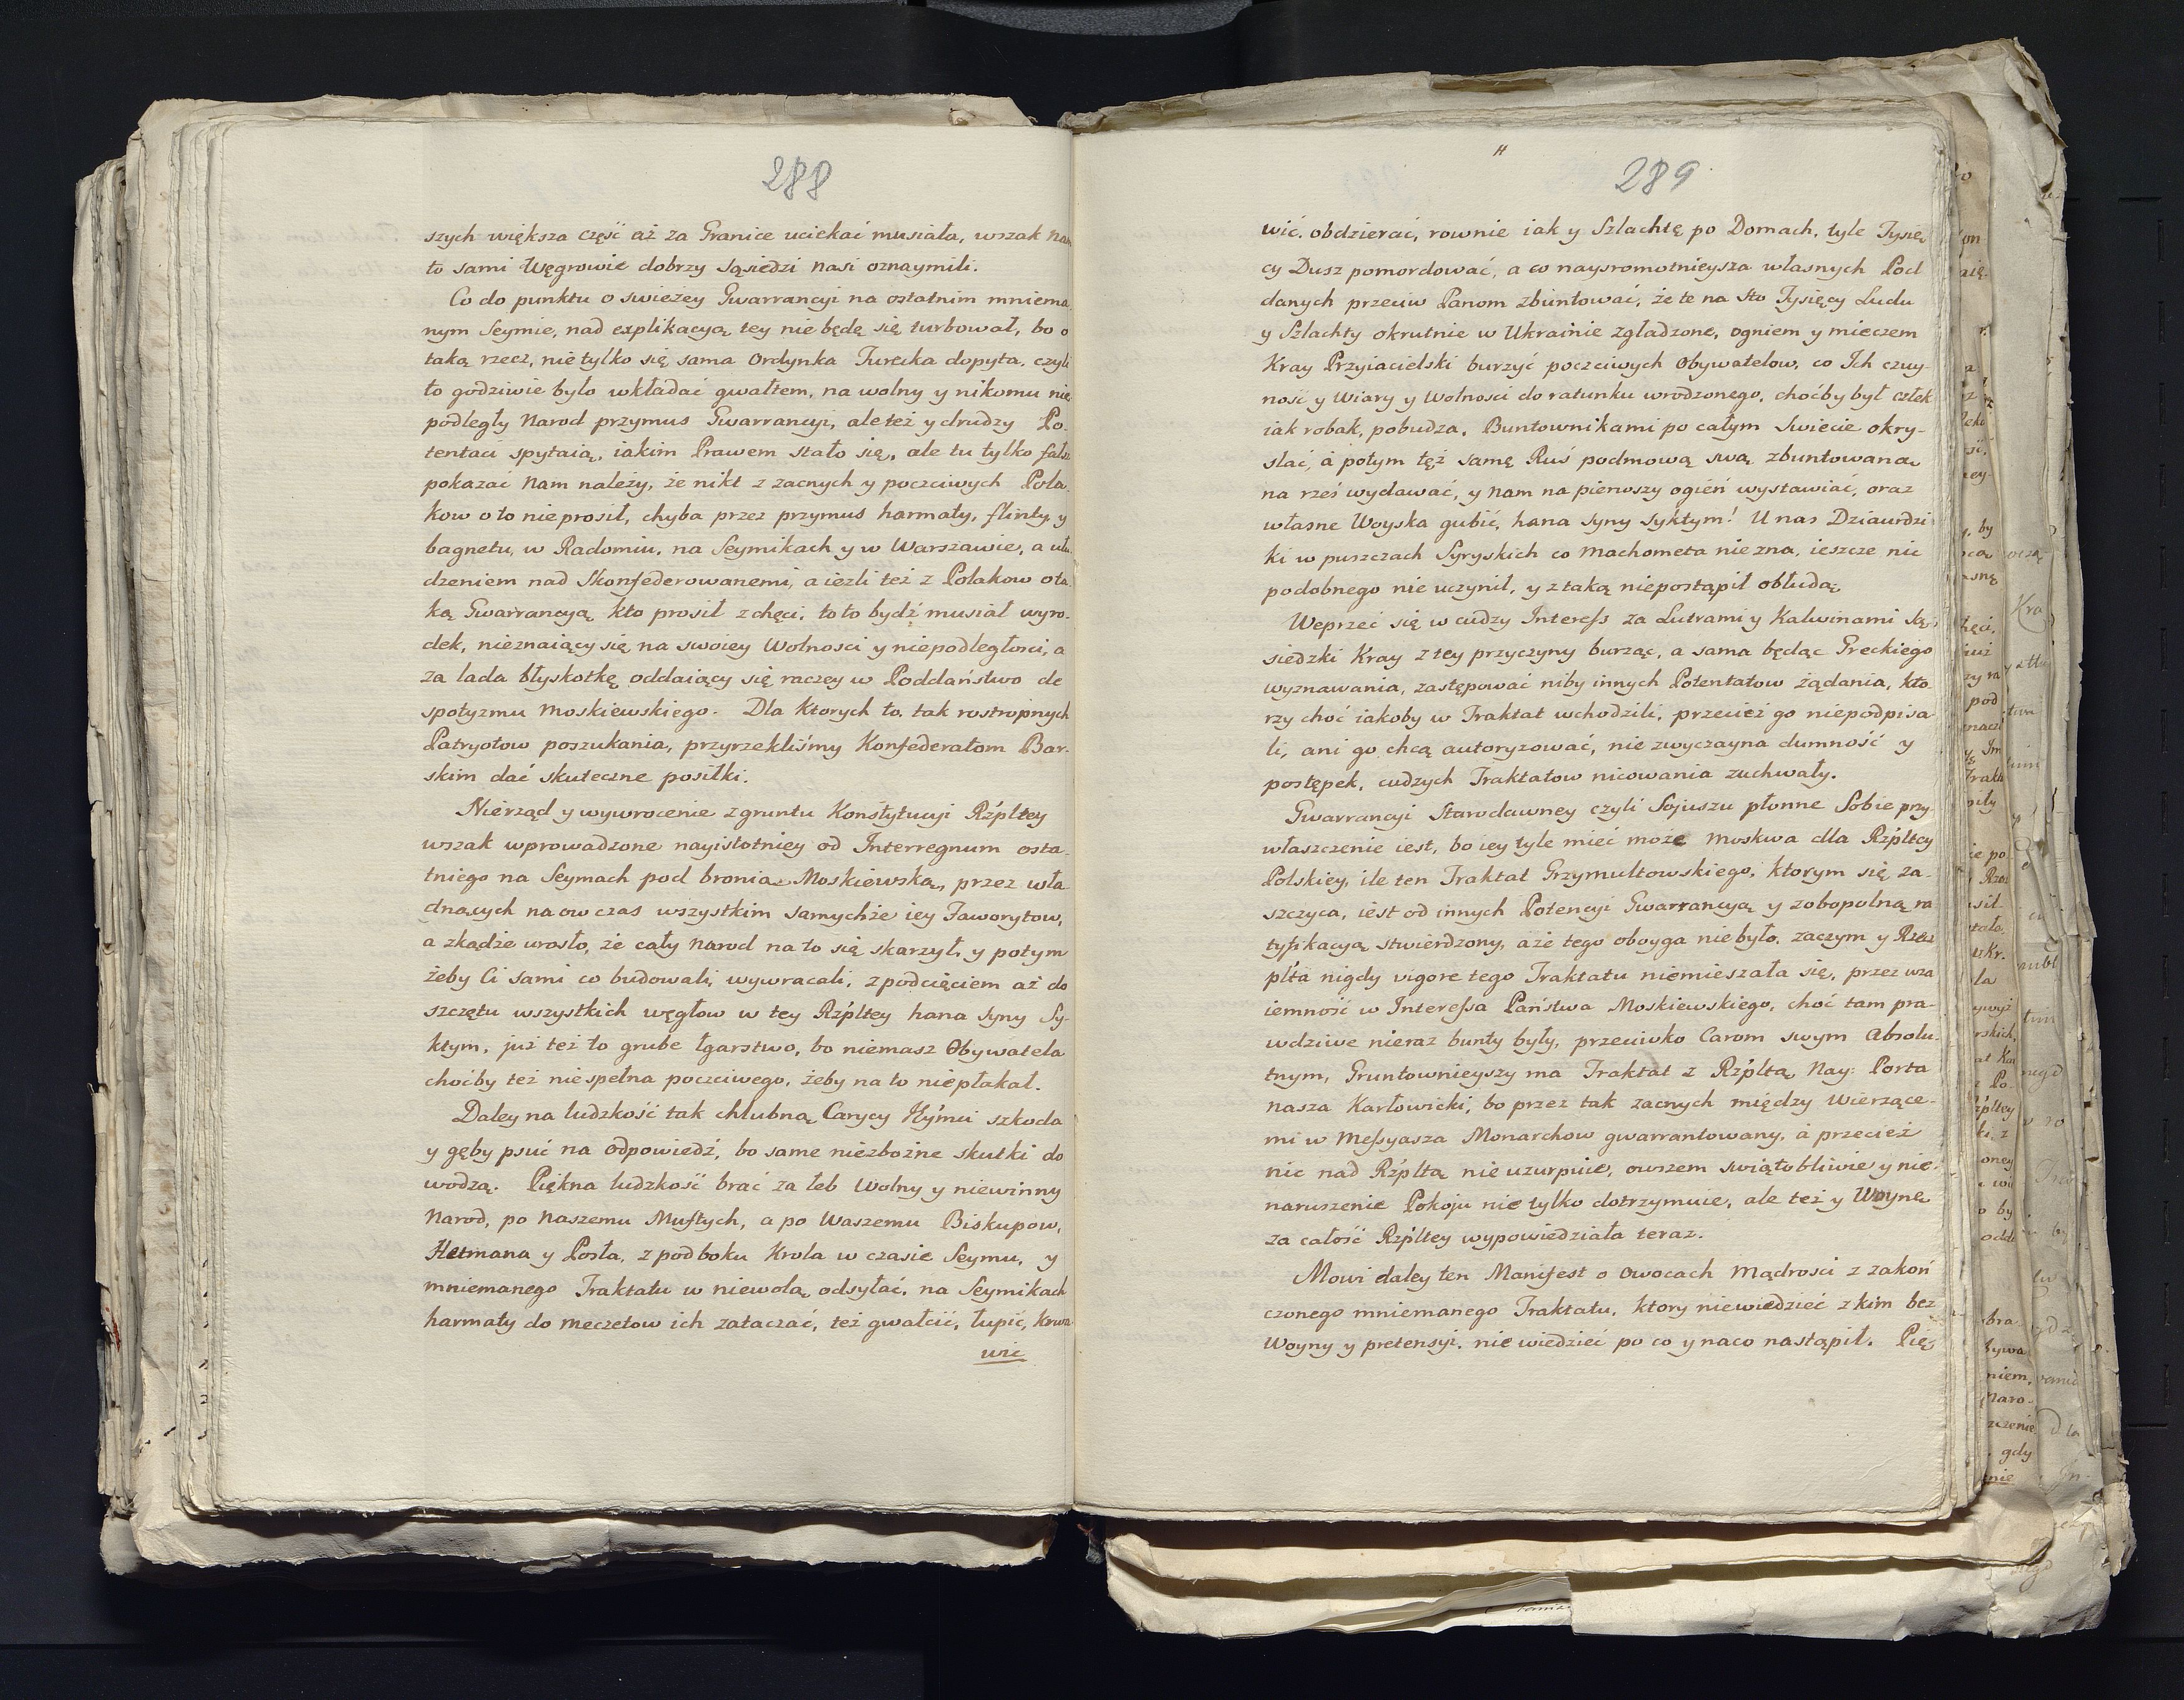 288
szych większa część aż za Granice uciekać musiała, wszak nam
to sami Węgrowie dobrzy sąsiedzi nasi oznaymili.
Co do punktu o swieżey Gwarrancyi na ostatnim mniema
nym Seymie, nad explikacyą tey nie będę się turbował, bo o
taką rzecz, nie tylko się sama Ordynka Turecka dopyta, czyli
to godziwie było wkładać gwałtem, na wolny y nikomu nie
podległy Narod przymus Gwarrancyi, ale też y drudzy Po-
tentaci spytaią, iakim Prawem stało się, ale tu tylko fałsz
pokazać nam należy, że nikt z zacnych y poczciwych Pola-
kow o to nie prosił, chyba przez przymus harmaty, flinty, y
bagnetu, w Radomiu, na Seymikach y w Warszawie, a ułu
dzeniem nad Skonfederowanemi, a ieżli też z Polakow o ta
ką Gwarrancyą kto prosił z chęci, to to bydź musiał wyro-
dek, nieznaiący się na swoiey Wolnosci y niepodległosci, a
za lada błyskotkę oddaiący się raczey w Poddaństwo de
spotyzmu Moskiewskiego. Dla ktorych to, tak rostropnych
Patryotow poszukania, przyrzekliśmy Konfederatom Bar-
skim dać skuteczne posiłki.
Nierząd y wywrocenie z gruntu Konstytucyi Rzpltey
wszak wprowadzone nayistotniey od Interregnum osta-
tniego na Seymach pod bronią Moskiewską, przez wła-
dnących na ow czas wszystkim samychże iey Faworytow,
a zkądże urosło, że cały Narod na to się skarzył, y potym
żeby Ci sami co budowali, wywracali, z podcięciem aż do
szczętu wszystkich węgłow w tey Rzpltey hana syny Sy-
ktym, już też to grube łgarstwo, bo niemasz Obywatela
choćby też niespełna poczciwego, żeby na to niepłakał.
Daley na ludzkość tak chlubną Carycy JEymci szkoda
y gęby psuć na odpowiedź, bo same niezbożne skutki do
wodzą. Piękna ludzkość brać za łeb Wolny y niewinny
Narod, po Naszemu Muftych, a po Waszemu Biskupow,
Hetmana y Posła, z pod boku Krola w czasie Seymu, y
mniemanego Traktatu w niewolą odsyłać, na Seymikach
harmaty do meczetow ich zataczać, też gwałcić, łupić, krwa
wić
289
wić, obdzierać, rownie iak y Szlachtę po Domach, tyle Tysię
cy Dusz pomordować, a co naysromotnieysza własnych Pod
danych przeciw Panom zbuntować, że te na sto Tysięcy Ludu
y Szlachty okrutnie w Ukrainie zgładzone, ogniem y mieczem
Kray Przyiacielski burzyć poczciwych Obywatelow, co Ich czuy-
ność y Wiary y Wolnosci do ratunku wrodzonego, choćby był człek
iak robak, pobudza, Buntownikami po całym Swiecie okry-
slać, à potym tęż samę Ruś podmową swą zbuntowaną
na rześ wydawać, y nam na pierwszy ogień wystawiać, oraz
własne Woyska gubić, hana syny syktym! U nas Dziaurdzi
ki w puszczach Syryskich co Machometa nie zna, ieszcze nic
podobnego nie uczynił, y z taką niepostąpił obłudą.
Weprzeć się w cudzy Interess za Lutrami y Kalwinami są-
siedzki Kray z tey przyczyny burząc, a sama będąc Greckiego
wyznawania, zastępować niby innych Potentatow żądania, kto
rzy choć iakoby w Traktat wchodzili, przecież go niepodpisa-
li, ani go chcą autoryzować, nie zwyczayna dumność y
postępek, cudzych Traktatow nicowania zuchwały.
Gwarrancyi Starodawney czyli Sojuszu płonne Sobie przy-
właszczenie iest, bo iey tyle mieć może Moskwa dla Rzpltey
Polskiey, ile ten Traktat Grzymultowskiego, ktorym się za-
szczyca, iest od innych Potencyi Gwarrancyą y zobopolną ra
tyfikacyą stwierdzony, a że tego oboyga niebyło, zaczym y Rzecz
plta nigdy vigore tego Traktatu niemieszała się, przez wza
iemność w Interessa Państwa Moskiewskiego, choć tam pra-
wdziwe nieraz bunty były, przeciwko Carom swym Absolu-
tnym, Gruntownieyszy ma Traktat z Rzpltą Nay: Porta
nasza Karłowicki, bo przez tak zacnych między Wierzące-
mi w Messyasza Monarchow gwarrantowany, à przecież
nic nad Rzpltą nie uzurpuie, owszem swiątobliwie y nie-
naruszenie Pokoju nie tylko dotrzymuie, ale też y Woynę
za całość Rzpltey wypowiedziała teraz.
Mowi daley ten Manifest o Owocach Mądrosci z zakoń
czonego mniemanego Traktatu, ktory niewiedzieć z kim bez
Woyny y pretensyi, nie wiedzieć po co y na co nastąpił. Pię